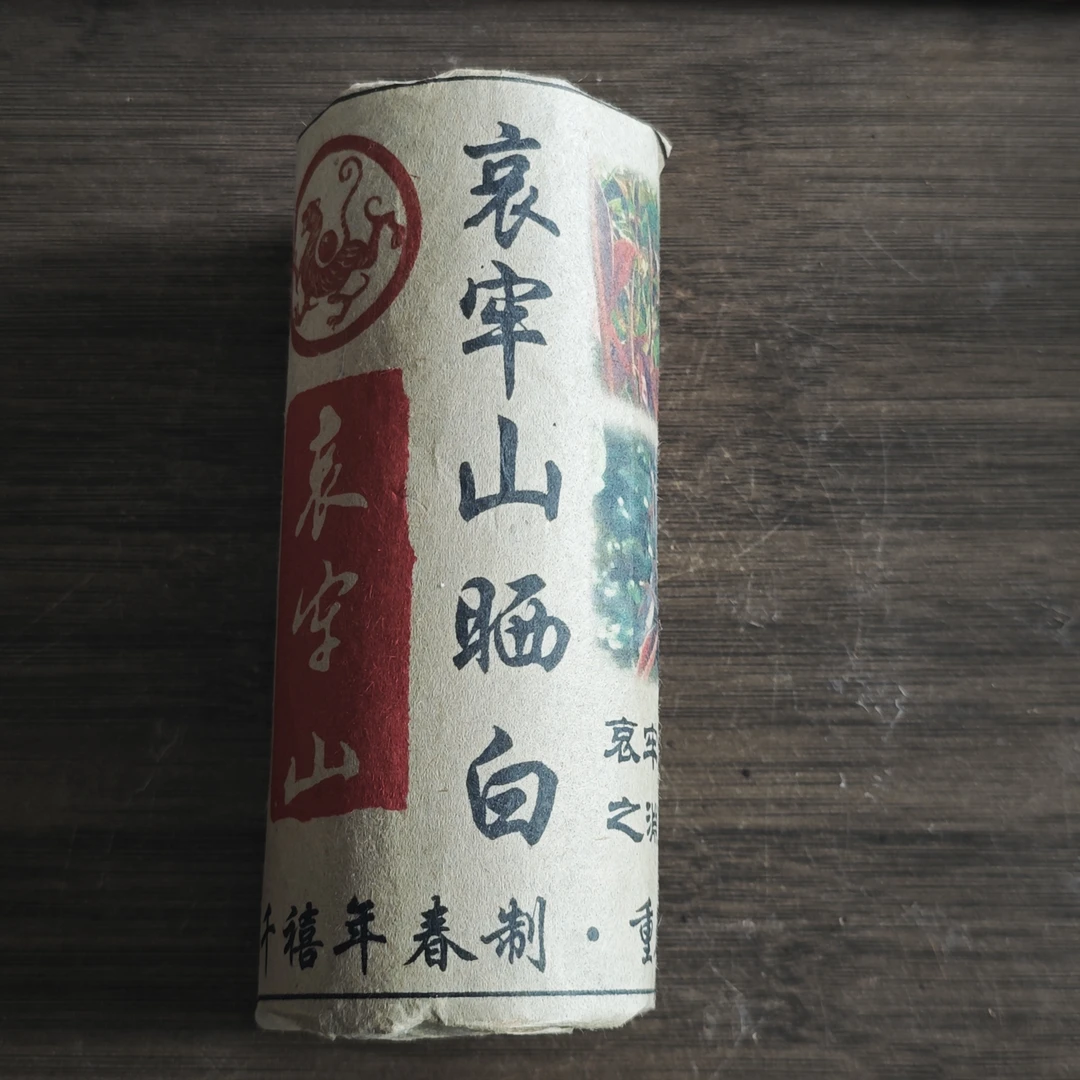 哀牢山晒白
哀牢山
哀牢
之
千禧年春制·重